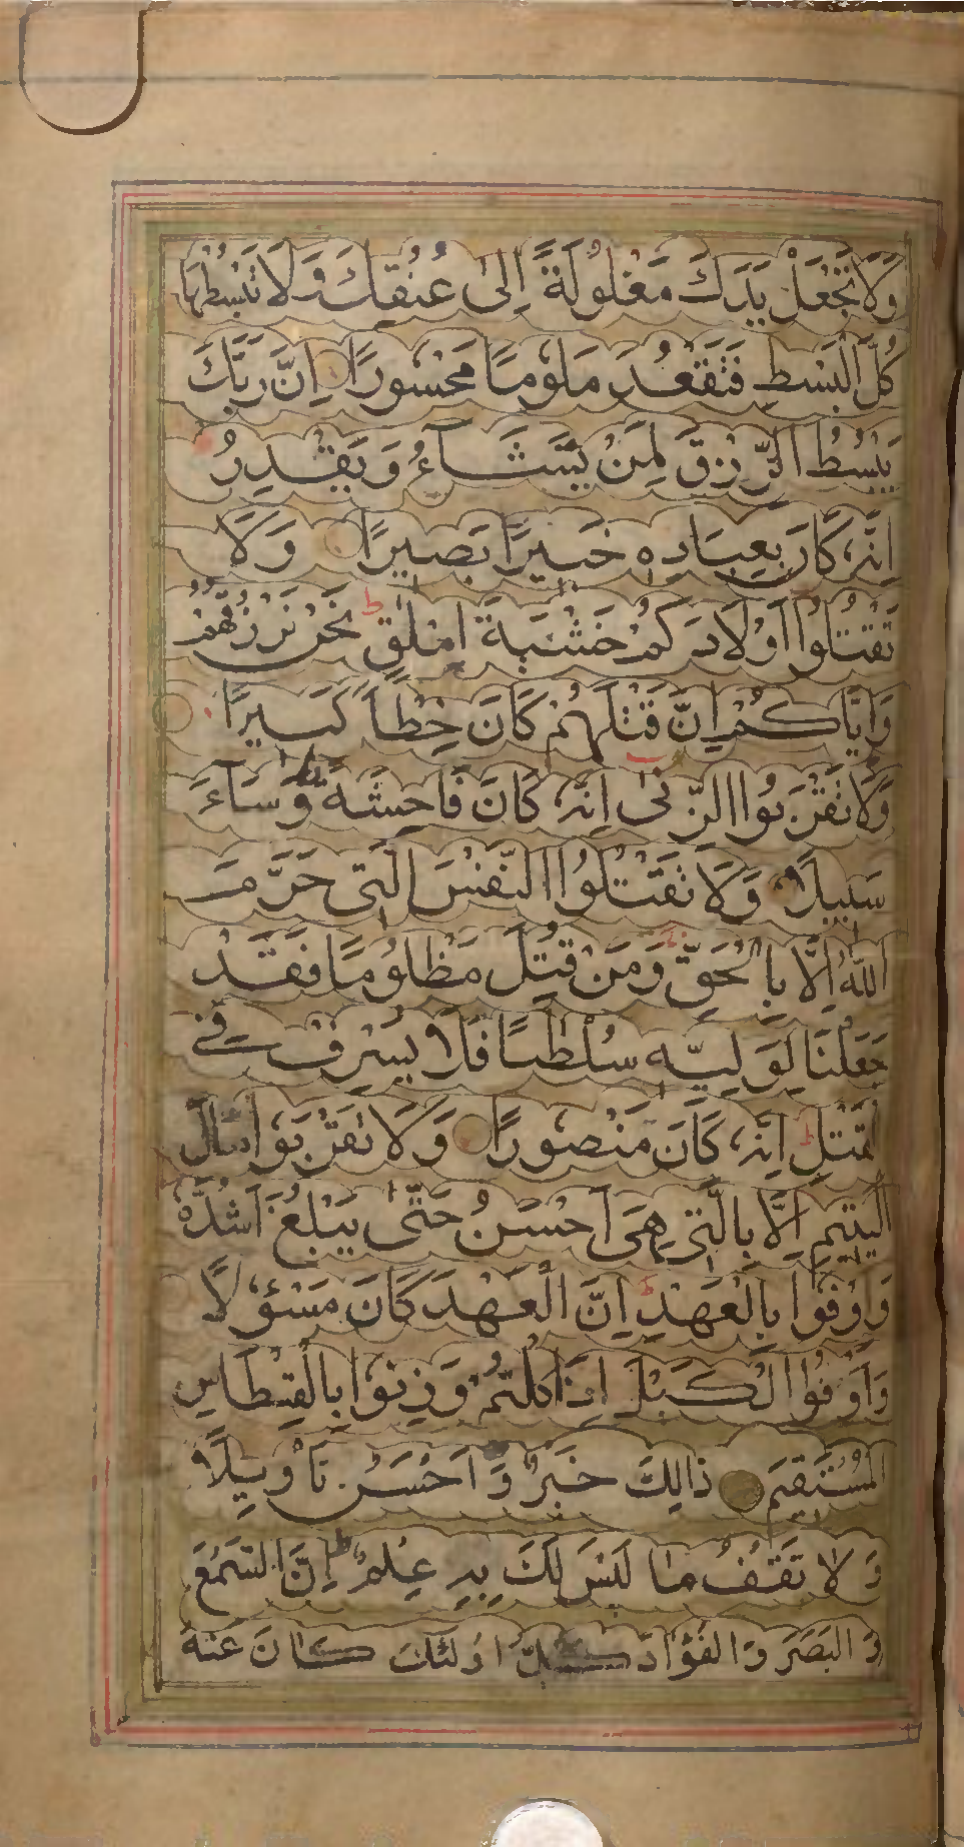 وَلَا تَجْعَلْ يَدَكَ مَغْلُولَةً اِلٰى عُنُقِكَ وَلَا تَبْسُطْهَا
كُلَّ الْبَسْطِ فَتَقْعُدَ مَلُومًا مَحْسُورًا اِنَّ رَبَّكَ
يَبْسُطُ الرِّزْقَ لِمَنْ يَّشَآءُ وَيَقْدِرُ
اِنَّهُ كَانَ بِعِبَادِهٖ خَبِيرًا بَصِيرًا وَلَا
تَقْتُلُوا اَوْلَادَكُمْ خَشْيَةَ اِمْلٰقٍ ط نَحْنُ نَرْزُقُهُمْ
وَاِيَّاكُمْ اِنَّ قَتْلَهُمْ كَانَ خِطْاً كَبِيرًا
وَلَا تَقْرَبُوا الزِّنٰى اِنَّهُ كَانَ فَاحِشَةً وَسَآءَ
سَبِيلًا وَلَا تَقْتُلُوا النَّفْسَ الَّتِى حَرَّمَ
اللّٰهُ اِلَّا بِالْحَقِّ وَمَنْ قُتِلَ مَظْلُومًا فَقَدْ
جَعَلْنَا لِوَلِيِّهٖ سُلْطٰنًا فَلَا يُسْرِفْ فِى
الْقَتْلِ ط اِنَّهُ كَانَ مَنْصُورًا وَلَا تَقْرَبُوا مَالَ
الْيَتِيمِ اِلَّا بِالَّتِى هِىَ اَحْسَنُ حَتّٰى يَبْلُغَ اَشُدَّهُ
وَاَوْفُوا بِالْعَهْدِ ط اِنَّ الْعَهْدَ كَانَ مَسْئُولًا
وَاَوْفُوا الْكَيْلَ اِذَا كِلْتُمْ وَزِنُوا بِالْقِسْطَاسِ
الْمُسْتَقِيمِ ذَالِكَ خَيْرٌ وَّاَحْسَنُ تَأْوِيلًا
وَلَا تَقْفُ مَا لَيْسَ لَكَ بِهٖ عِلْمٌ ط اِنَّ السَّمْعَ
وَالْبَصَرَ وَالْفُؤَادَ كُلُّ اُولٰئِكَ كَانَ عَنْهُ